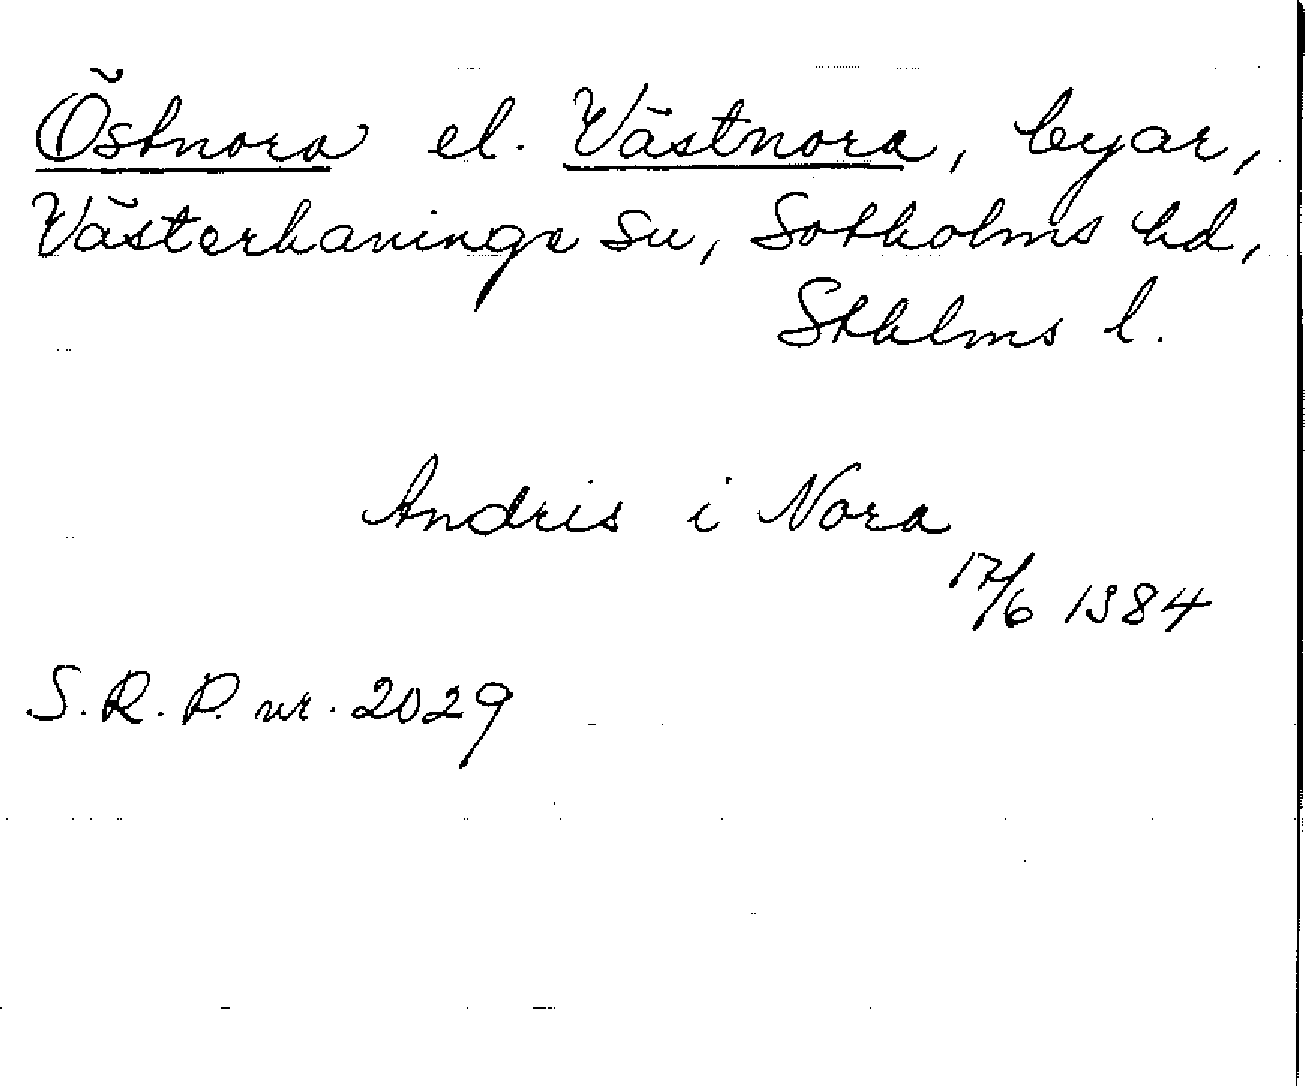 Östnora el. Västnora, byar,
Västerhaninge sn, Sotholms hd,
Sthlms l.
Andris i Nora
17/6 1384
S.R.P. nr. 2029